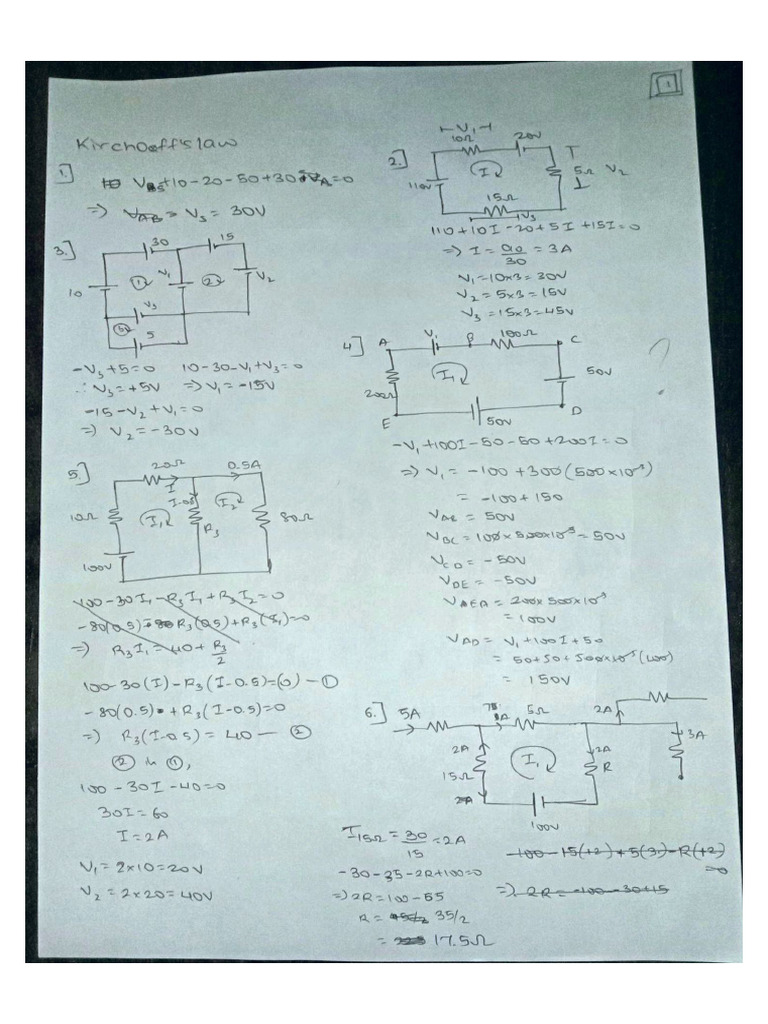 1
Kirchoeff's law
1.]
+10-20-50+30 =0
=> V_AB = V_3 = 30V
2.]
⊢V₁⊣
10Ω
20V
110V
I
5Ω V₂
15Ω
V3
110+10I-20+5I+15I=0
=> I = 90/30 = 3A
V₁=10x3=30V
V₂=5x3=15V
V₃=15x3=45V
3.]
30
15
10
1
V₁
2
V₂
V₃
5
-V₃+5=0 10-30-V₁+V₃=0
∴V₃=+5V =>V₁=-15V
-15-V₂+V₁=0
=> V₂=-30V
4]
A
V₁
B
100Ω
C
I₁
200Ω
50V
E
50V
D
?
-V₁+100I-50-50+200I=0
=> V₁= -100+300(500x10⁻³)
= -100+150
V_AB = 50V
V_BC = 100x500x10⁻³=50V
V_CD = -50V
V_DE = -50V
V_AEA = 200x500x10⁻³
= 100V
V_AD = V₁+100I+50
= 50+50+500x10⁻³(100)
= 150V
5.]
20Ω
0.5A
I
10Ω
I₁
R₃
I₂
80Ω
100V
100-30I₁-R₃I₁+R₃I₂=0
=> R₃I₁=40+R₃/2
100-30(I)-R₃(I-0.5)=(0) - ①
-80(0.5) +R₃(I-0.5)=0
=> R₃(I-0.5) = 40 - ②
② in ①,
100-30I-40=0
30I=60
I=2A
V₁=2x10=20V
V₂=2x20=40V
6.]
5A
5Ω
2A
3A
2A
15Ω
I₁
2A
R
100V
I₁₅Ω = 30/15 = 2A
-30-35-2R+100=0
=>2R=100-65
R = 35/2
= 17.5Ω
=> 2R=-100-30+15